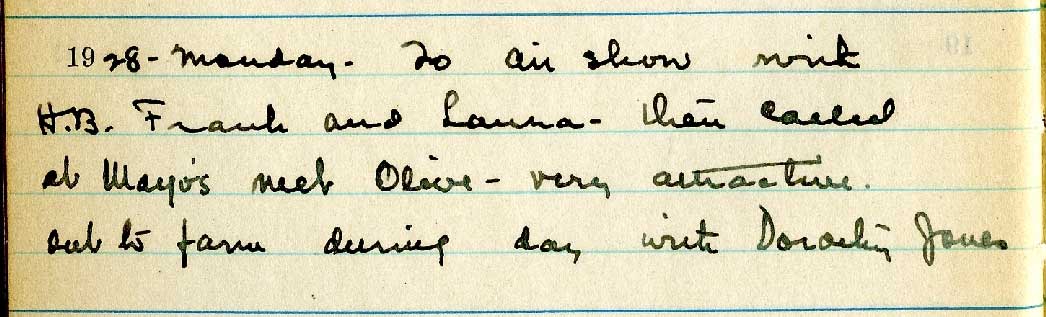 1928- Monday- To air show with
H.B. Frank and Launa- then called
at Mayo's met Olive- very attractive.
out to farm during day with Dorothy Jones